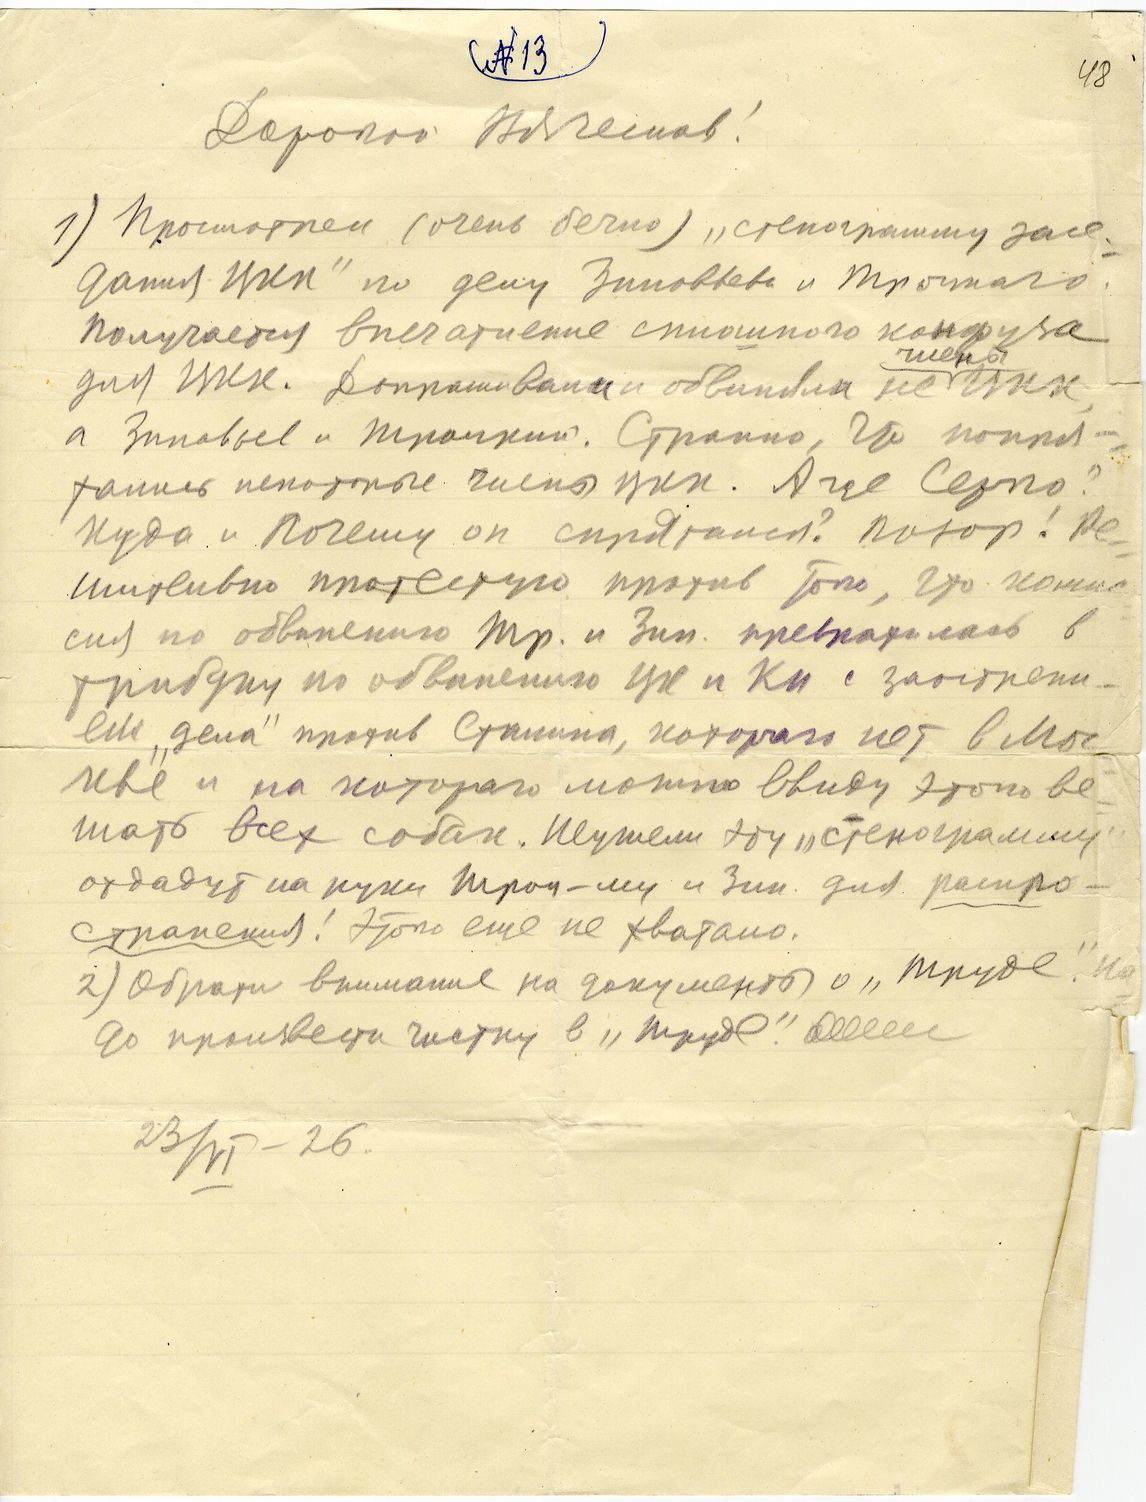 (№ 13)
48
Дорогой Вячеслав!
1) Просмотрел (очень бегло) „стенограмму засе-
дания ЦКК" по делу Зиновьева и Троцкого.
Получается впечатление сплошного конфуза
для ЦКК. Допрашивали и обвиняли не члены ЦКК,
а Зиновьев и Троцкий. Странно, что попря-
тались некоторые члены ЦКК. А где Серго?
Куда и почему он спрятался? Позор! Ре-
шительно протестую против того, что комис
сия по обвинению Тр. и Зин. превратилась в
трибуну по обвинению ЦК и КИ с заострени-
ем „дела" против Сталина, которого нет в Мос
кве и на которого можно ввиду этого ве-
шать всех собак. Неужели эту „стенограмму"
отдадут на руки Троц-му и Зин. для распро-
странения! Этого еще не хватало.
2) Обрати внимание на документы о „Труде". На
до произвести чистку в „Труде".
23/VI – 26.